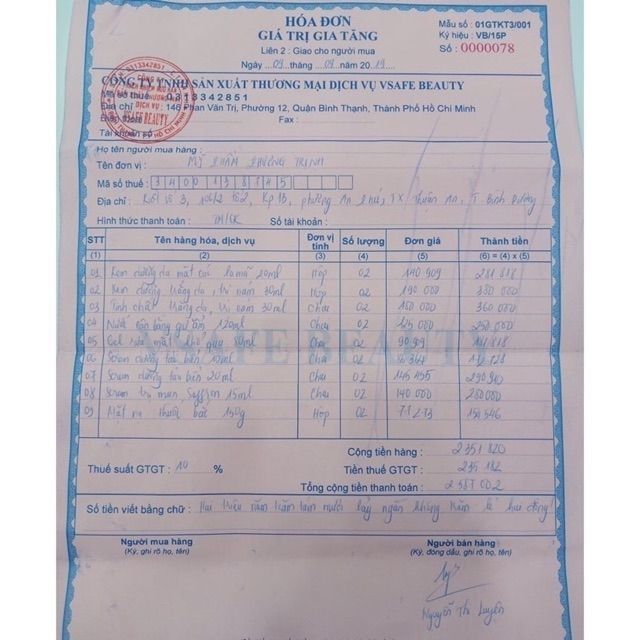 HÓA ĐƠN
GIÁ TRỊ GIA TĂNG
Liên 2 : Giao cho người mua
Ngày 09 tháng 09 năm 2019
Mẫu số : 01GTKT3/001
Ký hiệu : VB/15P
Số : 0000078
CÔNG TY TNHH SẢN XUẤT THƯƠNG MẠI DỊCH VỤ VSAFE BEAUTY
Mã số thuế : 0313342851
Địa chỉ : 146 Phan Văn Trị, Phường 12, Quận Bình Thạnh, Thành Phố Hồ Chí Minh
Điện thoại : Fax :
Tài khoản số :
Họ tên người mua hàng :
Tên đơn vị : Mỹ Phẩm Phương Trinh
Mã số thuế :
Địa chỉ : 3, Kp 1B, phường An Phú, TX Thuận An, T Bình Dương
Hình thức thanh toán : TM/CK Số tài khoản :
STT Tên hàng hóa, dịch vụ Đơn vị tính Số lượng Đơn giá Thành tiền
(1) (2) (3) (4) (5) (6) = (4) x (5)
01 Kem dưỡng da mặt 20ml Hộp 02 140 909 281 818
02 Kem dưỡng trắng da, trị nám 30ml Hộp 02 190 000 380 000
03 Tinh chất trắng da, trị nám 30ml Chai 02 180 000 360 000
04 Nước cân bằng giữ ẩm 120ml Chai 02 125 000 250 000
05 Gel rửa mặt Chai 02 90 909 181 818
06 Serum dưỡng tảo biển 10ml Chai 02
07 Serum dưỡng tảo biển 20ml Chai 02 145 455 290 910
08 Serum trị mụn Saffron 15ml Chai 02 140 000 280 000
09 Mặt nạ thuốc bắc 150g Hộp 02 77 273 154 546
VSAFE BEAUTY
Cộng tiền hàng : 2 351 820
Thuế suất GTGT : 10 % Tiền thuế GTGT : 235 182
Tổng cộng tiền thanh toán : 2 587 002
Số tiền viết bằng chữ : Hai triệu năm trăm tám mươi bảy ngàn không trăm lẻ hai đồng
Người mua hàng Người bán hàng
(Ký, ghi rõ họ, tên) (Ký, đóng dấu, ghi rõ họ, tên)
Nguyễn Thị Luyện